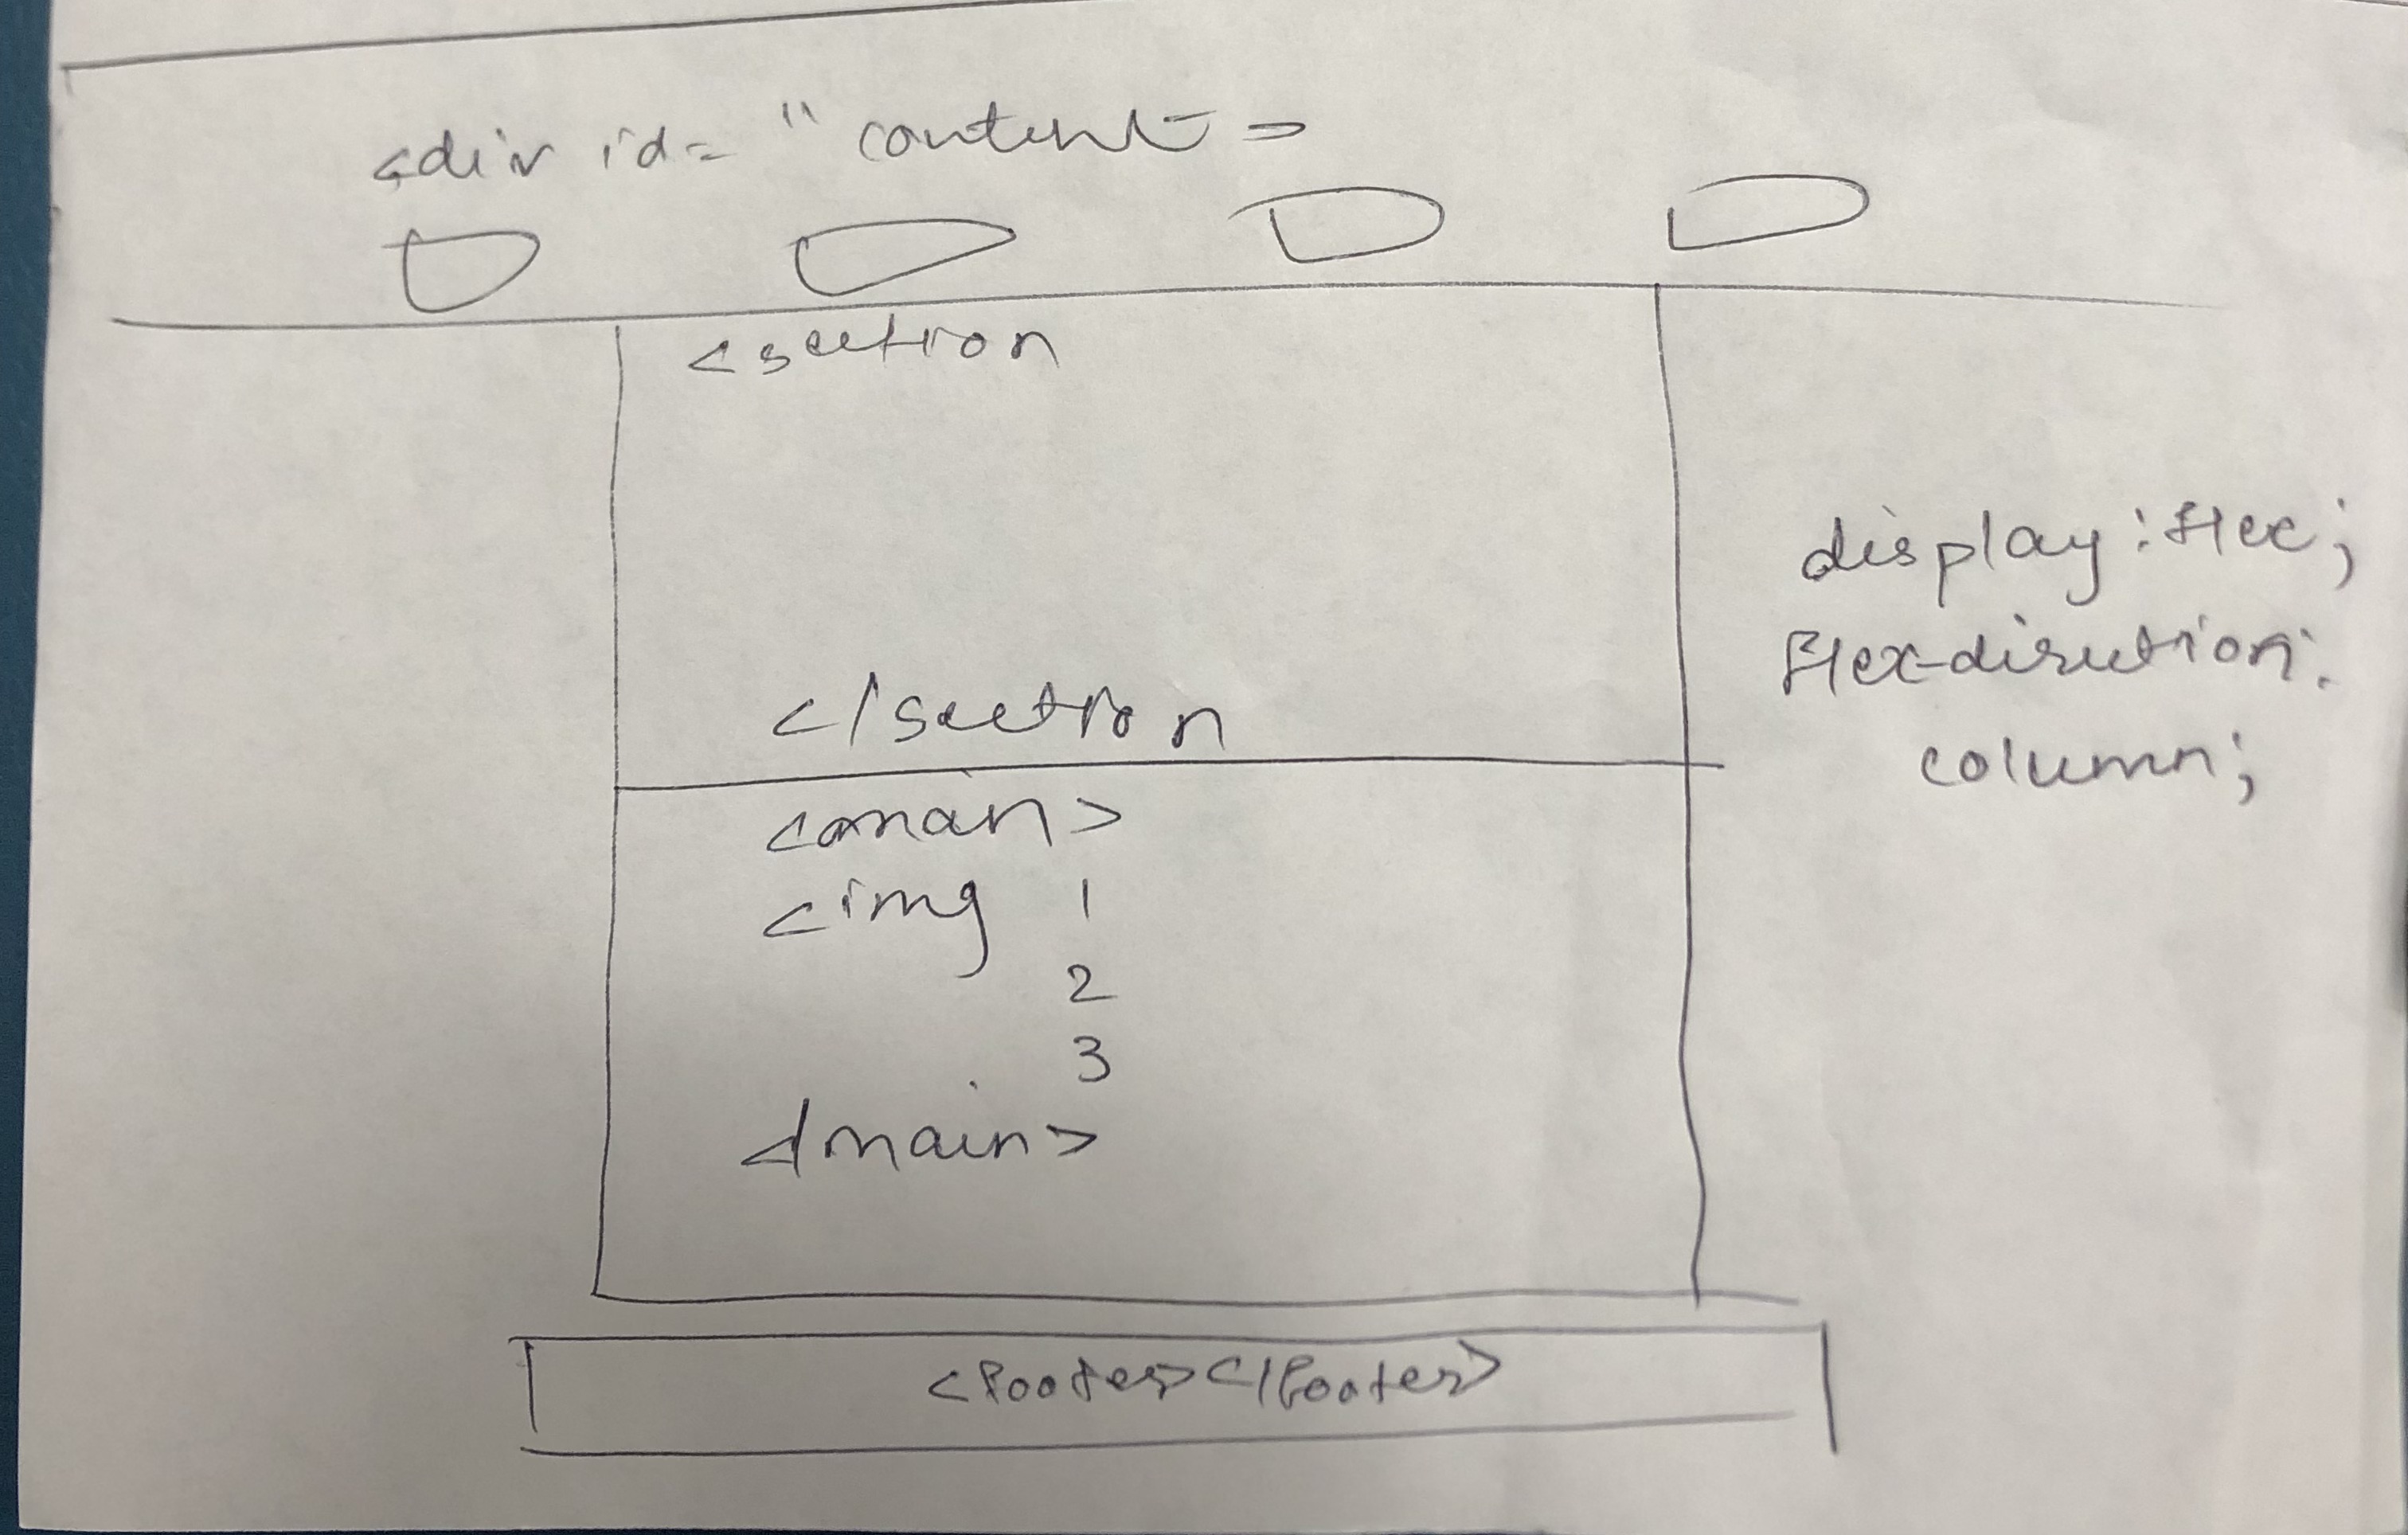 <div id= "content>
<section
</section
<main>
<img 1
2
3
</main>
display:flex;
flex-direction:
column;
<footer></footer>